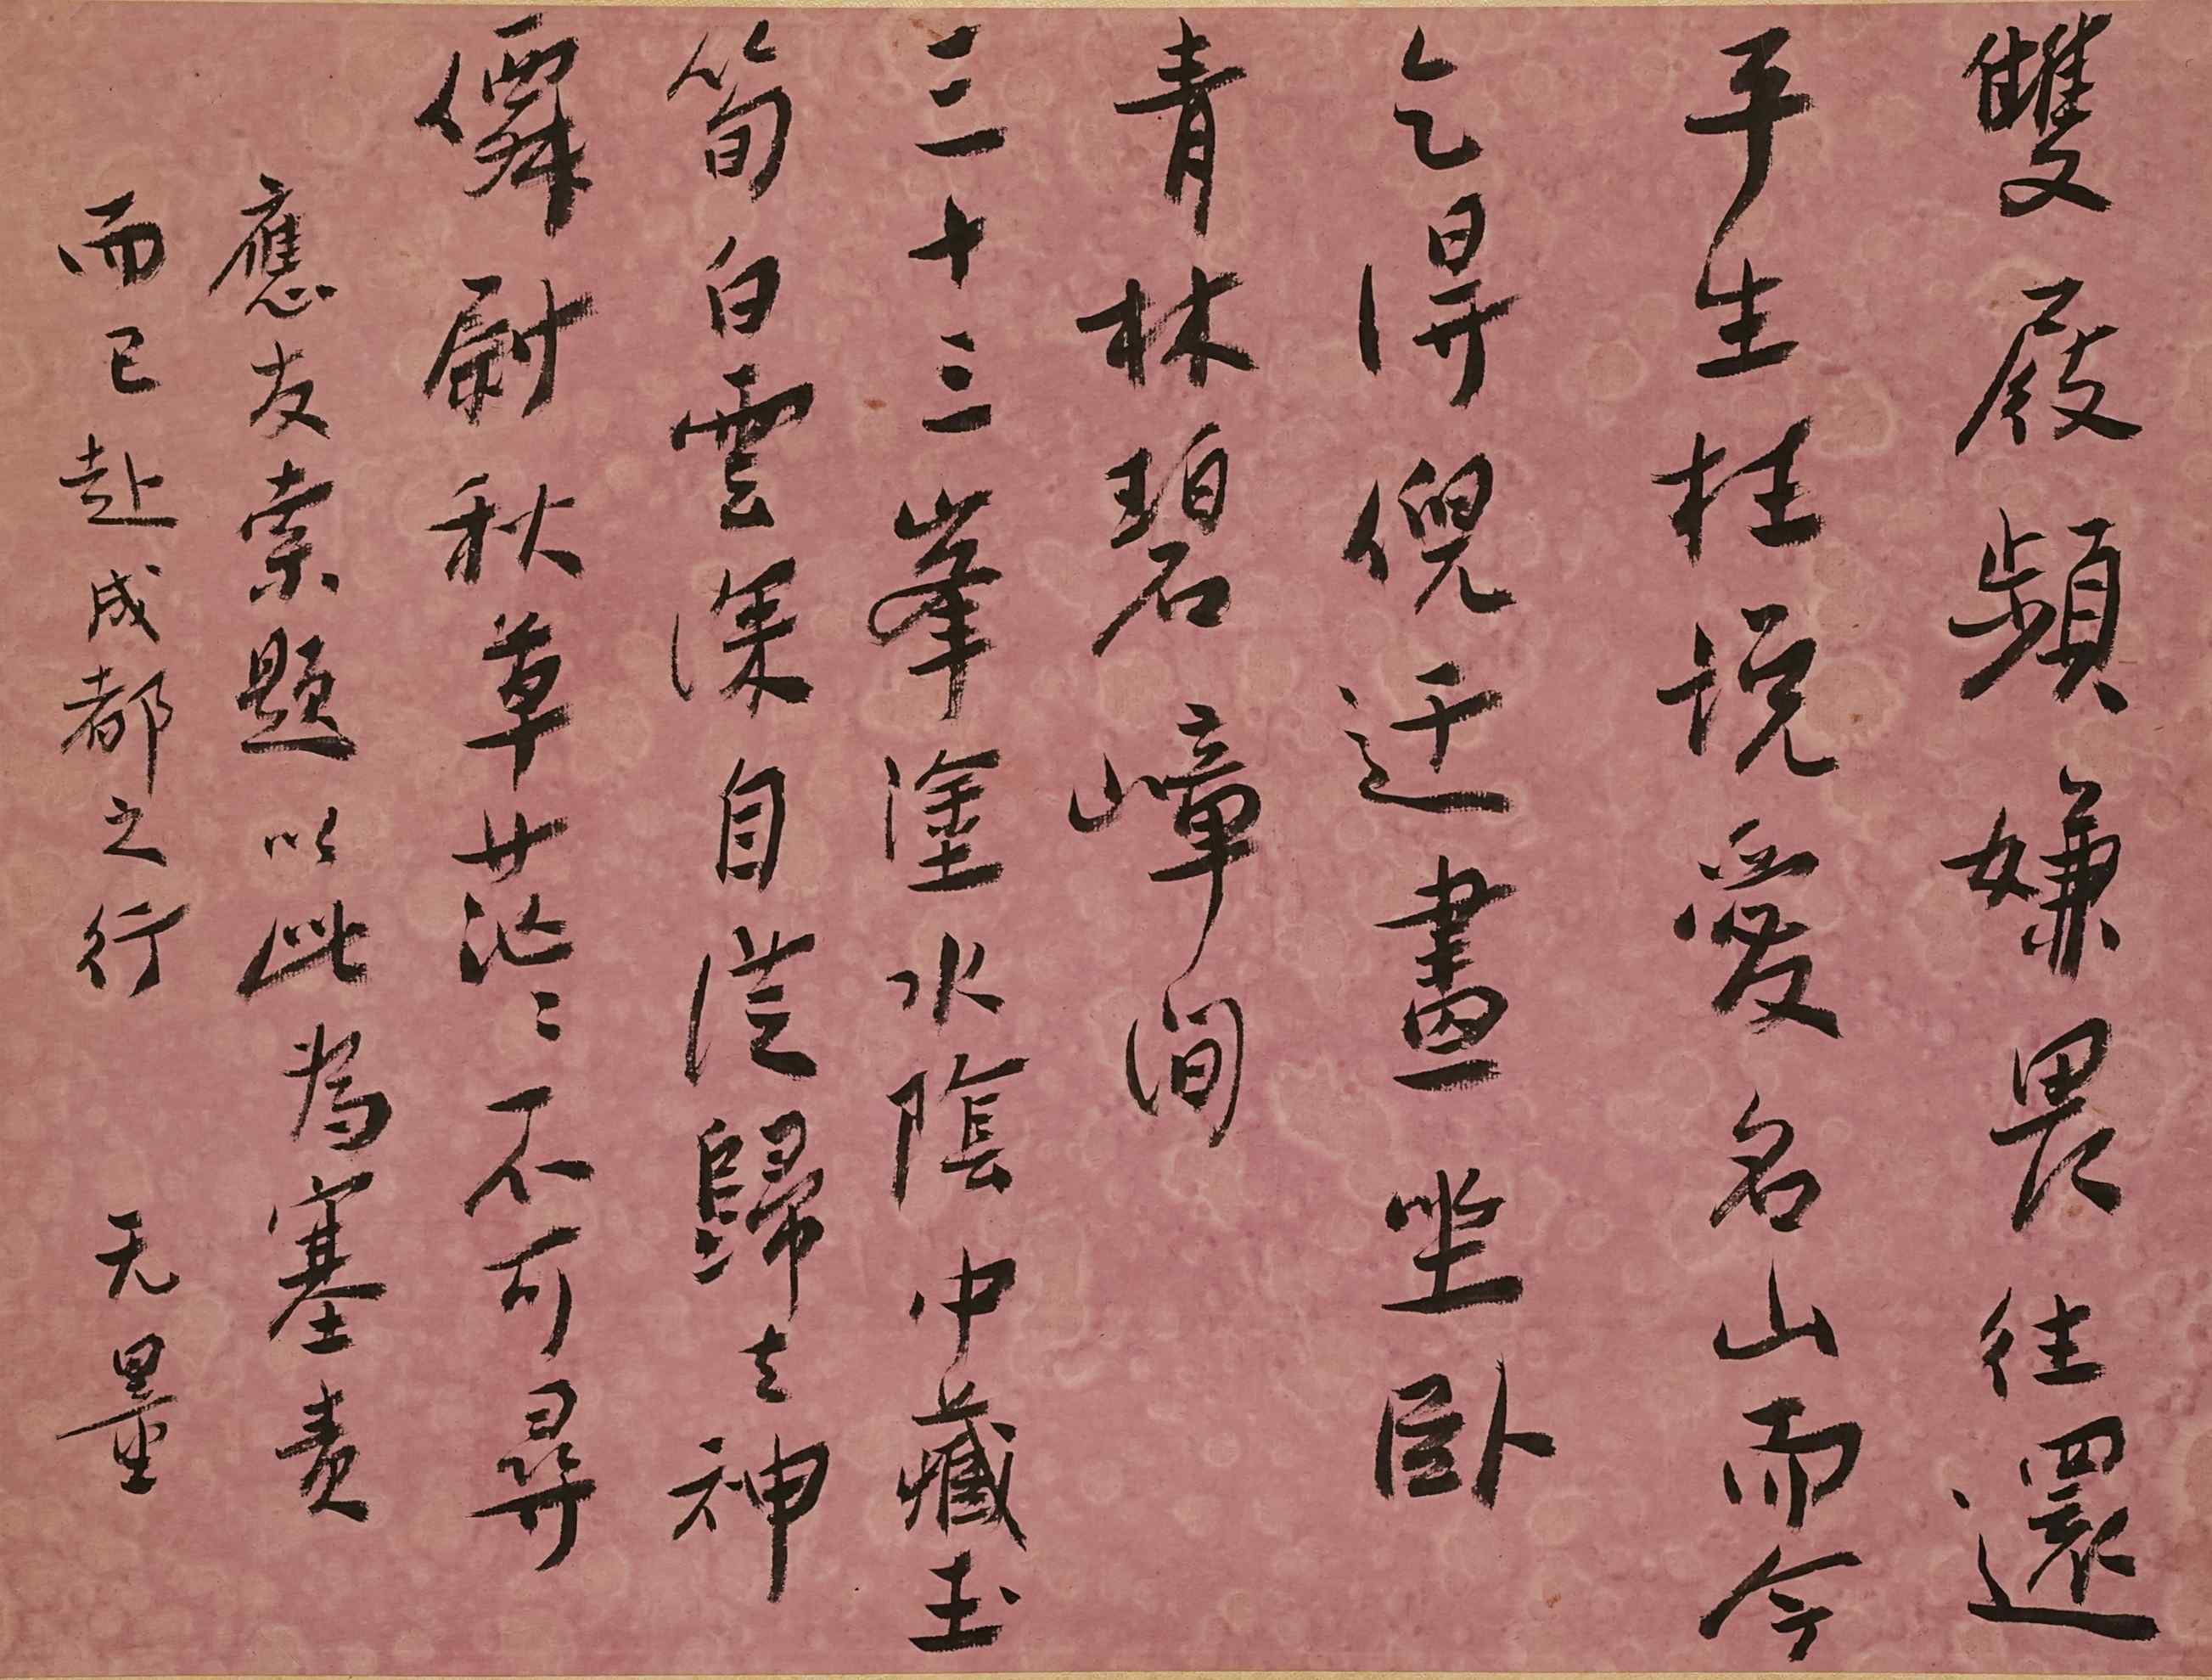 雙屐頻嫌畏往還
平生枉説愛名山而今
乞得倪迂畫坐卧
青林碧嶂間
三十三峯塗水陰中藏玉
筍白雲深自從歸去神
僊尉秋草茫〻不可尋
應友索題以此為塞責
而已赴成都之行 无量